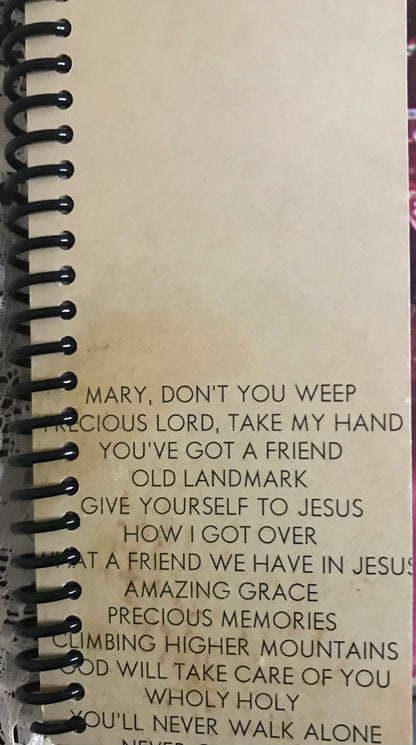 MARY, DON'T YOU WEEP
PRECIOUS LORD, TAKE MY HAND
YOU'VE GOT A FRIEND
OLD LANDMARK
GIVE YOURSELF TO JESUS
HOW I GOT OVER
WHAT A FRIEND WE HAVE IN JESUS
AMAZING GRACE
PRECIOUS MEMORIES
CLIMBING HIGHER MOUNTAINS
GOD WILL TAKE CARE OF YOU
WHOLY HOLY
YOU'LL NEVER WALK ALONE
NEVER